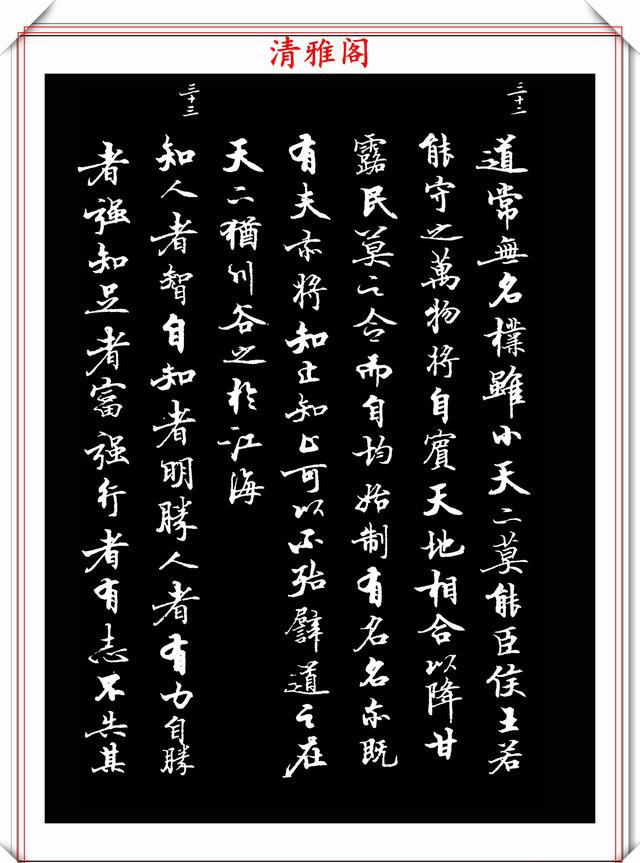 清雅阁
三十二
道常無名樸雖小天下莫能臣侯王若
能守之萬物將自賓天地相合以降甘
露民莫之令而自均始制有名名亦既
有夫亦將知止知止可以不殆譬道之在
天下猶川谷之於江海
三十三
知人者智自知者明勝人者有力自勝
者强知足者富强行者有志不失其